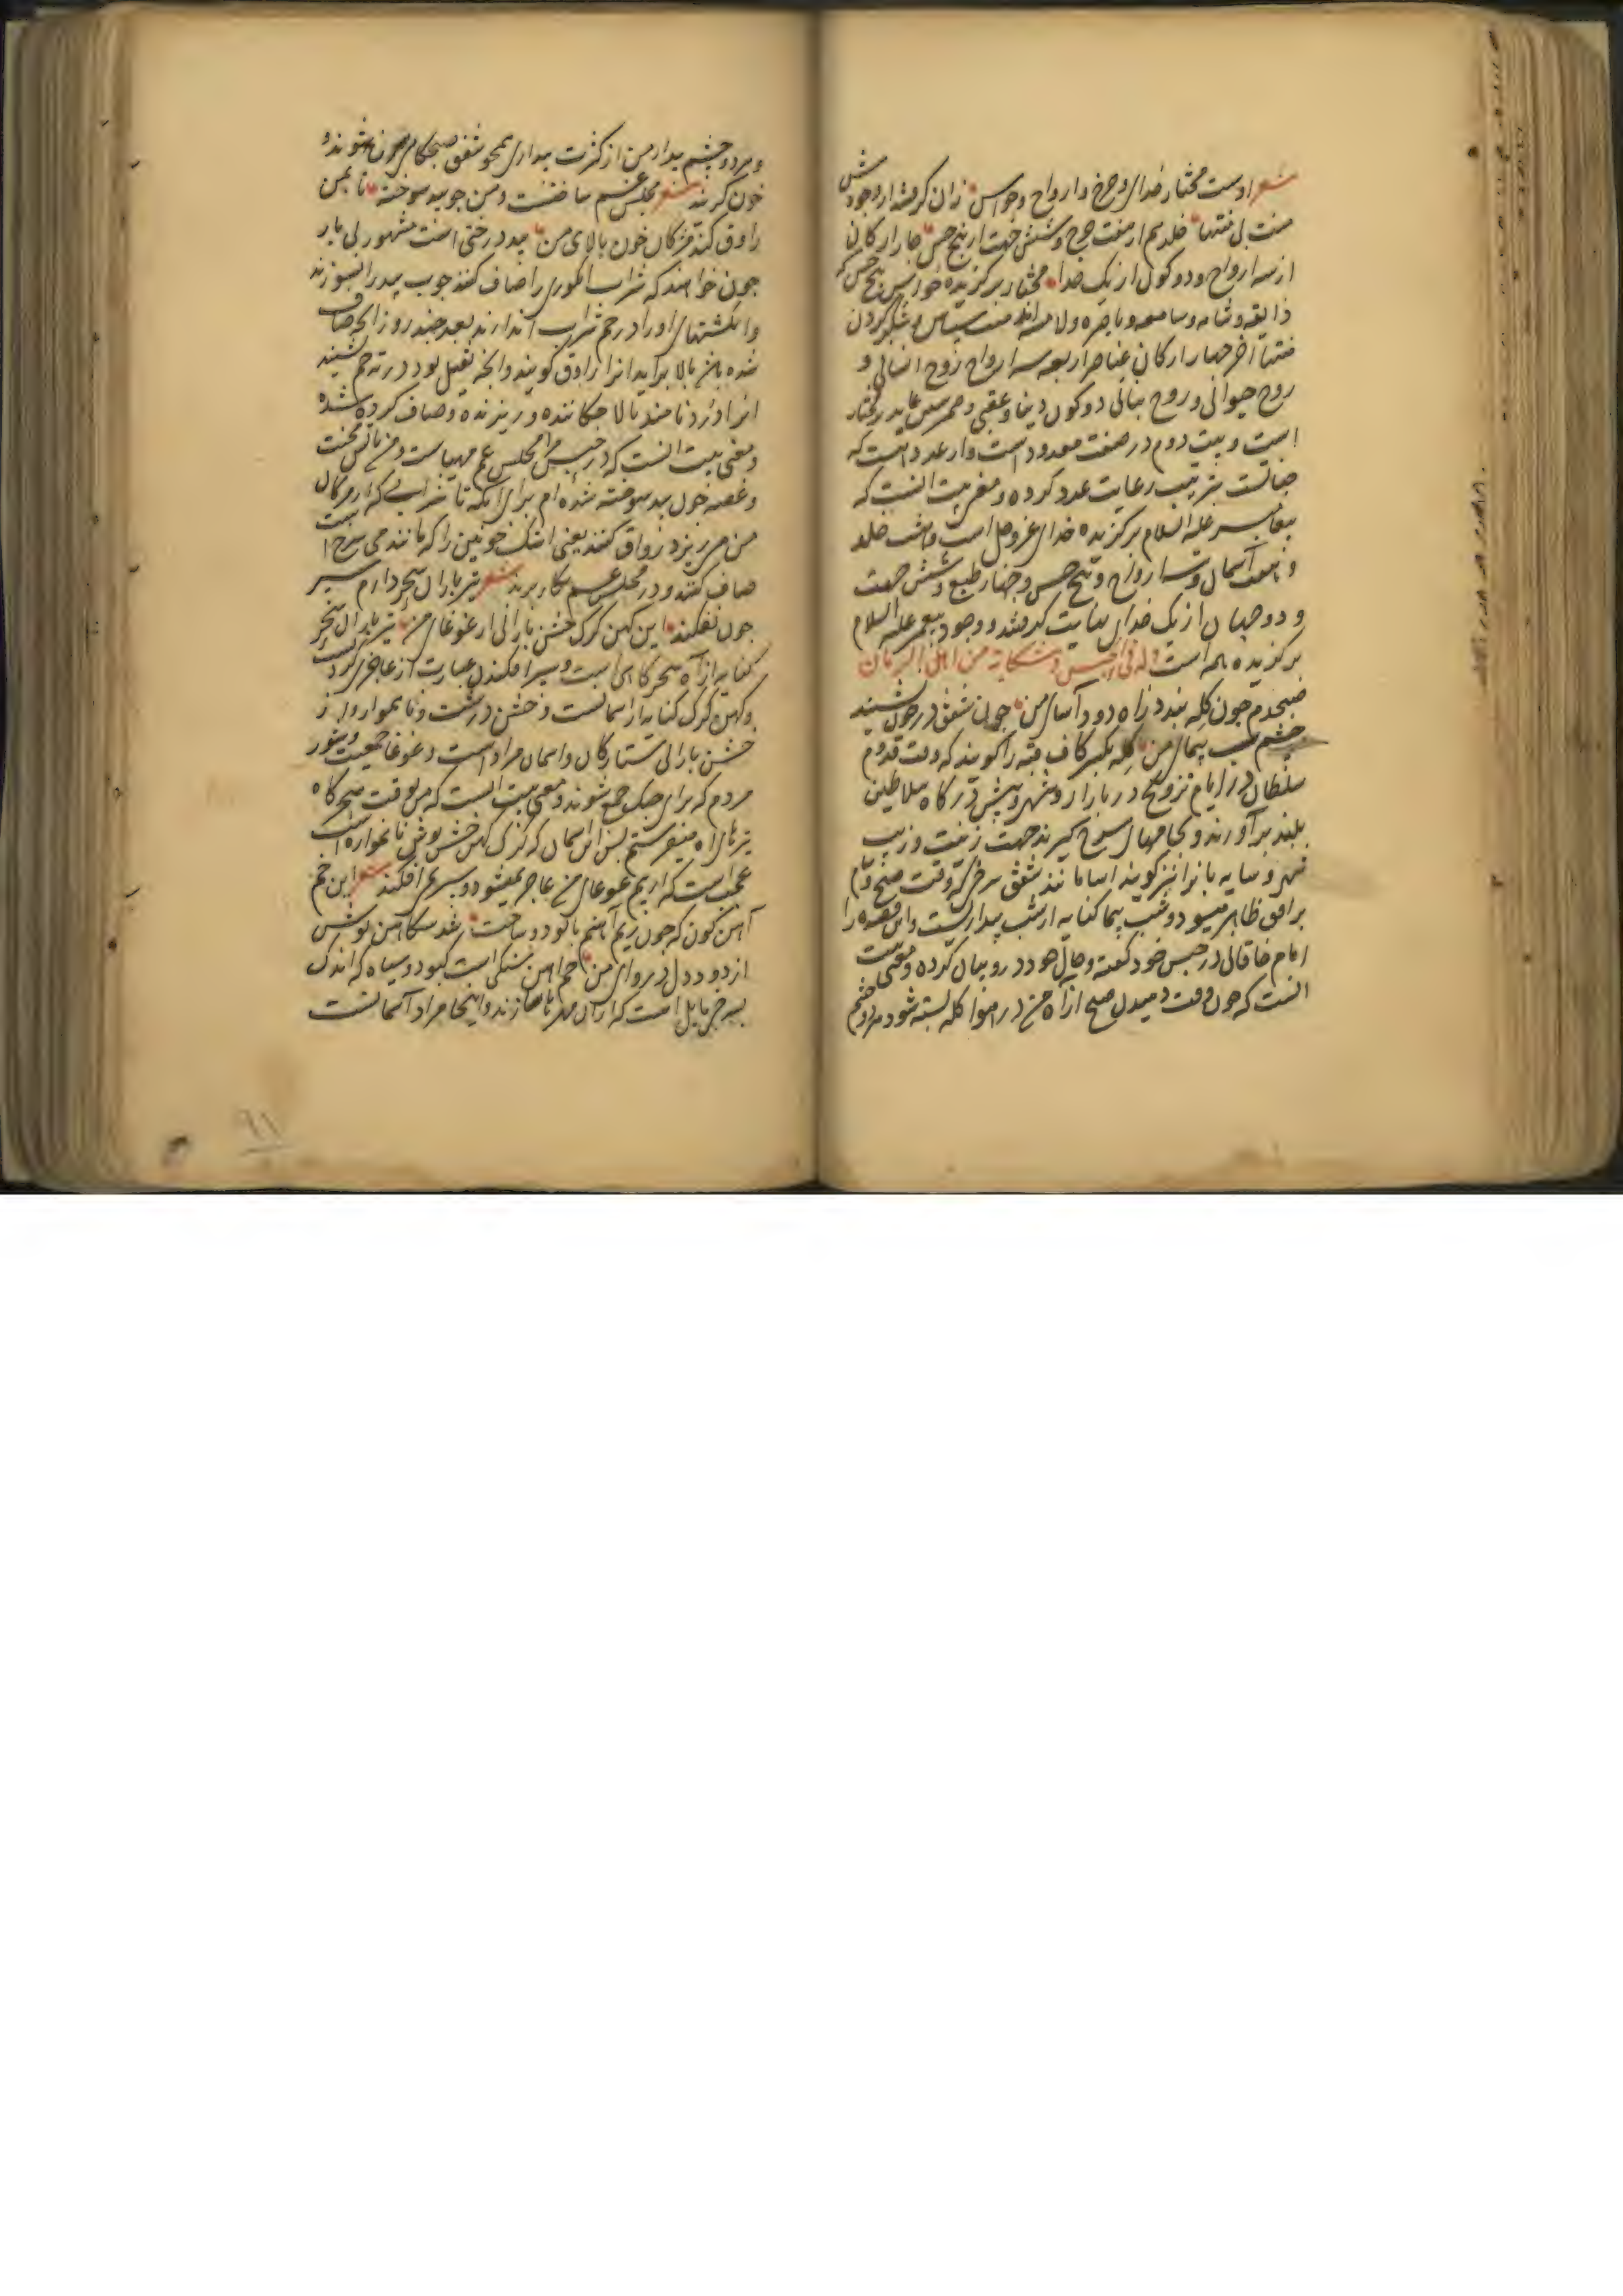 شعر اوست مختار خدای و چرخ و ارواح و حواس زان گرفتند از وجودش
منت بی منتها خلد هم از هفت چرخ و شش جهت از پنج حس چار ارکان
از سه ارواح و دو کون از یک خدا مختار برگزیده حواس پنج حس که
ذایقه و شامه و سامعه و باصره و لامسه اند منت سپاس و شکر کردن
منتها آخر چهار ارکان عناصر اربعه سه ارواح روح انسانی و
روح حیوانی و روح نباتی دو کون دنیا و عقبی و ضمیر شین عاید بمختار
است و بیت دوم در صنعت معدود است و از عدد هشت که
جنانست بترتیب رعایت عدد کرده و معنی بیت انست که
پیغامبر علیه السلام برگزیده خدای عز و جل است و هشت خلد
و هفت آسمان و سه ارواح و پنج حس و چهار طبع و شش جهت
و دو جهان از یک خدای عنایت گرفتند و وجود پیغمبر علیه السلام
برگزیده همه است وله فی الحبس و شکایة من اهل الزمان
صبحدم چون کله بندد آه دود آسای من چون شفق در خون نشیند
چشم شب پیمای من کله بکسر کاف قبه را گویند که وقت قدوم
سلطان در ایام تزویج در بازار و شهر و پیش درگاه سلاطین
بلند بر آورند و بجامهای سرخ گیرند جهت زینت و زیب
شهر و سایه بانرا نیز گویند اسا مانند شفق سرخی که وقت صبح و شام
بر افق ظاهر میشود و شب پیما کنایه از شب بیداریست و این قصیده را
امام خاقانی در حبس خود گفته و حال خود درو بیان کرده و معنی بیت
انست که چون وقت دمیدن صبح از آه من در هوا کله بسته شود هر دو چشم
و هر دو چشم بیدار من از کثرت بیداری همچو شفق صبحگاهی خون شوند و
خون گریند شعر مجلس غم ساختست و من چو بید سوخته تا بمن
راوق کند مژگان خون پالای من بید درختی است مشهور بی بار
چون خواهند که شراب انگوری را صاف کنند چوب بید را بسوزند
و انگشتهای او را در خم شراب اندازند بعد چند روز انچه صاف
شده باشد بالا برآید انرا راوق گویند و انچه ثقیل بود در ته خم نشیند
انرا درد نامند پالا چکاننده و ریزنده و صاف کرده شده
و معنی بیت انست که در حبس مرا مجلس غم مهیاست و من باتش محنت
و غصه چون بید سوخته شده ام برای انکه تا شرابی که از مژگان
من میریزد راوق کنند یعنی اشک خونین را که مانند می سرخ است
صاف کنند و در مجلس غم بکار برند شعر تیر باران سحر دارم سپر
چون نفکند این کهن گرگ خشن بارانی از غوغای من تیر باران سحر
کنایه از آه سحرگاهی است و سپر افکندن عبارت از عاجز گردیدنست
و کهن گرگ کنایه از آسمانست و خشن درشت و ناهموار و از
خشن بارانی ستارگان و اسمان مراد است و غوغا جمعیت و شور
مردم که برای جنگ جمع شوند و معنی بیت انست که من بوقت سحرگاه
تیرهای آه میفرستم پس این آسمان که گرگ کهن خشن پوش ناهموارست
عجب است که از بیم غوغای من عاجز نمیشود و سپر نمی افکند شعر این خم
آهن گون که چون ریم آهنم پالود و سوخت شد سکاهن پوشش
از دود دل دروای من خم آهن سنگی است کبود و سیاه که اندک
بسرخی مایل است که از آن مهره ها سازند و اینجا مراد آسمانست
۹۱